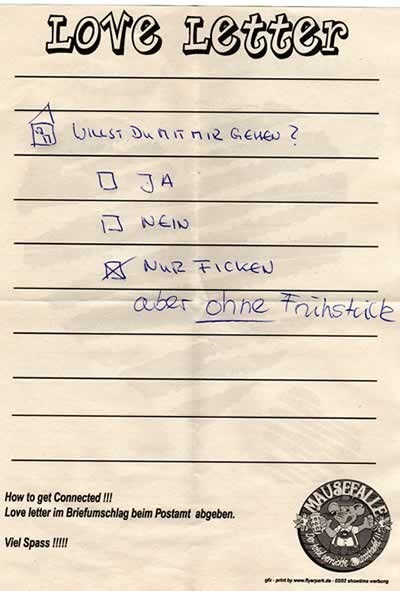 Love Letter
WILLST DU MIT MIR GEHEN?
JA
NEIN
NUR FICKEN
aber ohne Frühstück
How to get Connected !!!
Love letter im Briefumschlag beim Postamt abgeben.
Viel Spass !!!!!
MAUSEFALLE
gfx - print by www.flyerpark.de - 03/02 showtime werbung